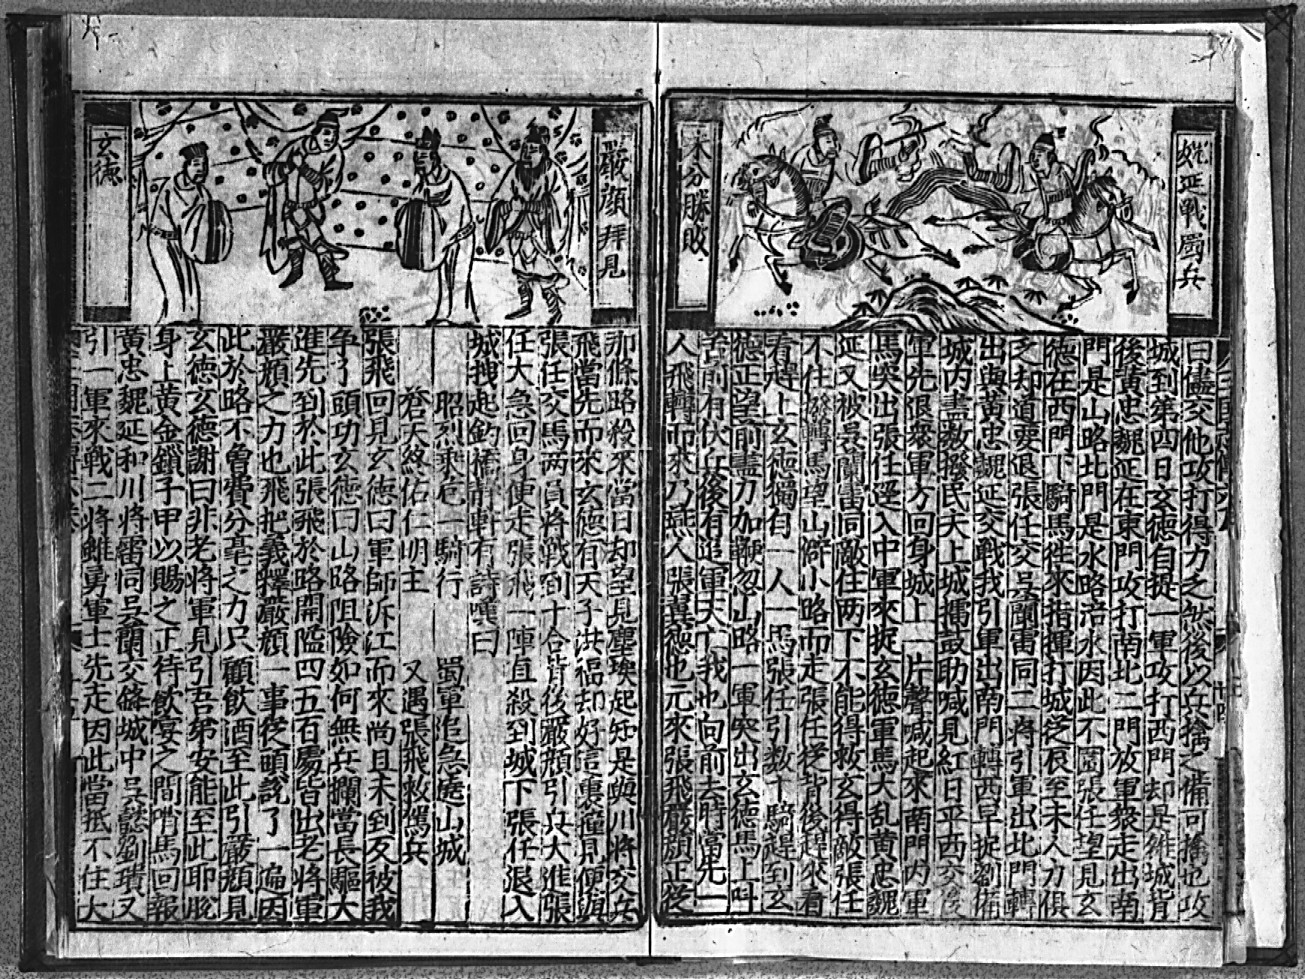 魏延戰蜀兵
未分勝敗
曰儘交他攻打得力乏然後以兵擒之備可擒也攻
城到第四日玄德自提一軍攻打西門却是雒城背
後黃忠魏延在東門攻打南北二門放軍衆走出南
門是山路北門是水路涪水因此不圍張任望見玄
德在西門下騎馬徃來指揮打城從辰至未人力俱
乏却道要退張任交吳蘭雷同二將引軍出北門轉
出與黃忠魏延交戰我引軍出南門轉西早捉劉備
城內盡数撥民夫上城擂鼓助喊見紅日平西交後
軍先退衆軍方回身城上一片聲喊起來南門內軍
馬突出張任逕入中軍來捉玄德軍馬大乱黃忠魏
延又被吳蘭雷同敵住两下不能得救玄得敵張任
不住撥轉馬望山僻小路而走張任從背後趕來看
看趕上玄德獨自一人一馬張任引数十騎趕到玄
德正望前盡力加鞭忽山路一軍突出玄德馬上叫
苦前有伏兵後有追軍天亡我也向前去時當先一
人飛轉而來乃燕人張翼德也元來張飛嚴顔正從
嚴顔拜見
玄德
那條路殺來當日却望見塵埃起知是與川將交兵
飛當先而來玄德有天子洪福却好這裏撞見便與
張任交馬两員將戰到十合背後嚴顔引兵大進張
任大急回身便走張飛一陣直殺到城下張任退入
城拽起釣橋靜軒有詩嘆曰
昭烈乘危一騎行 蜀軍追急遶山城
蒼天終佑仁明主 又遇張飛救駕兵
張飛回見玄德曰軍師泝江而來尚且未到反被我
争了頭功玄德曰山路阻險如何無兵攔當長驅大
進先到於此張飛於路開隘四五百處皆出老將軍
嚴顔之力也飛把義釋嚴顔一事從頭說了一遍因
此於路不曾費分毫之力只顧飲酒至此引嚴顔見
玄德玄德謝曰非老將軍見引吾弟安能至此耶脫
身上黃金鎖子甲以賜之正待飲宴之間哨馬回報
黃忠魏延和川將雷同吳蘭交鋒城中吳懿劉璝又
引一軍來戰二將雖勇軍士先走因此當抵不住大